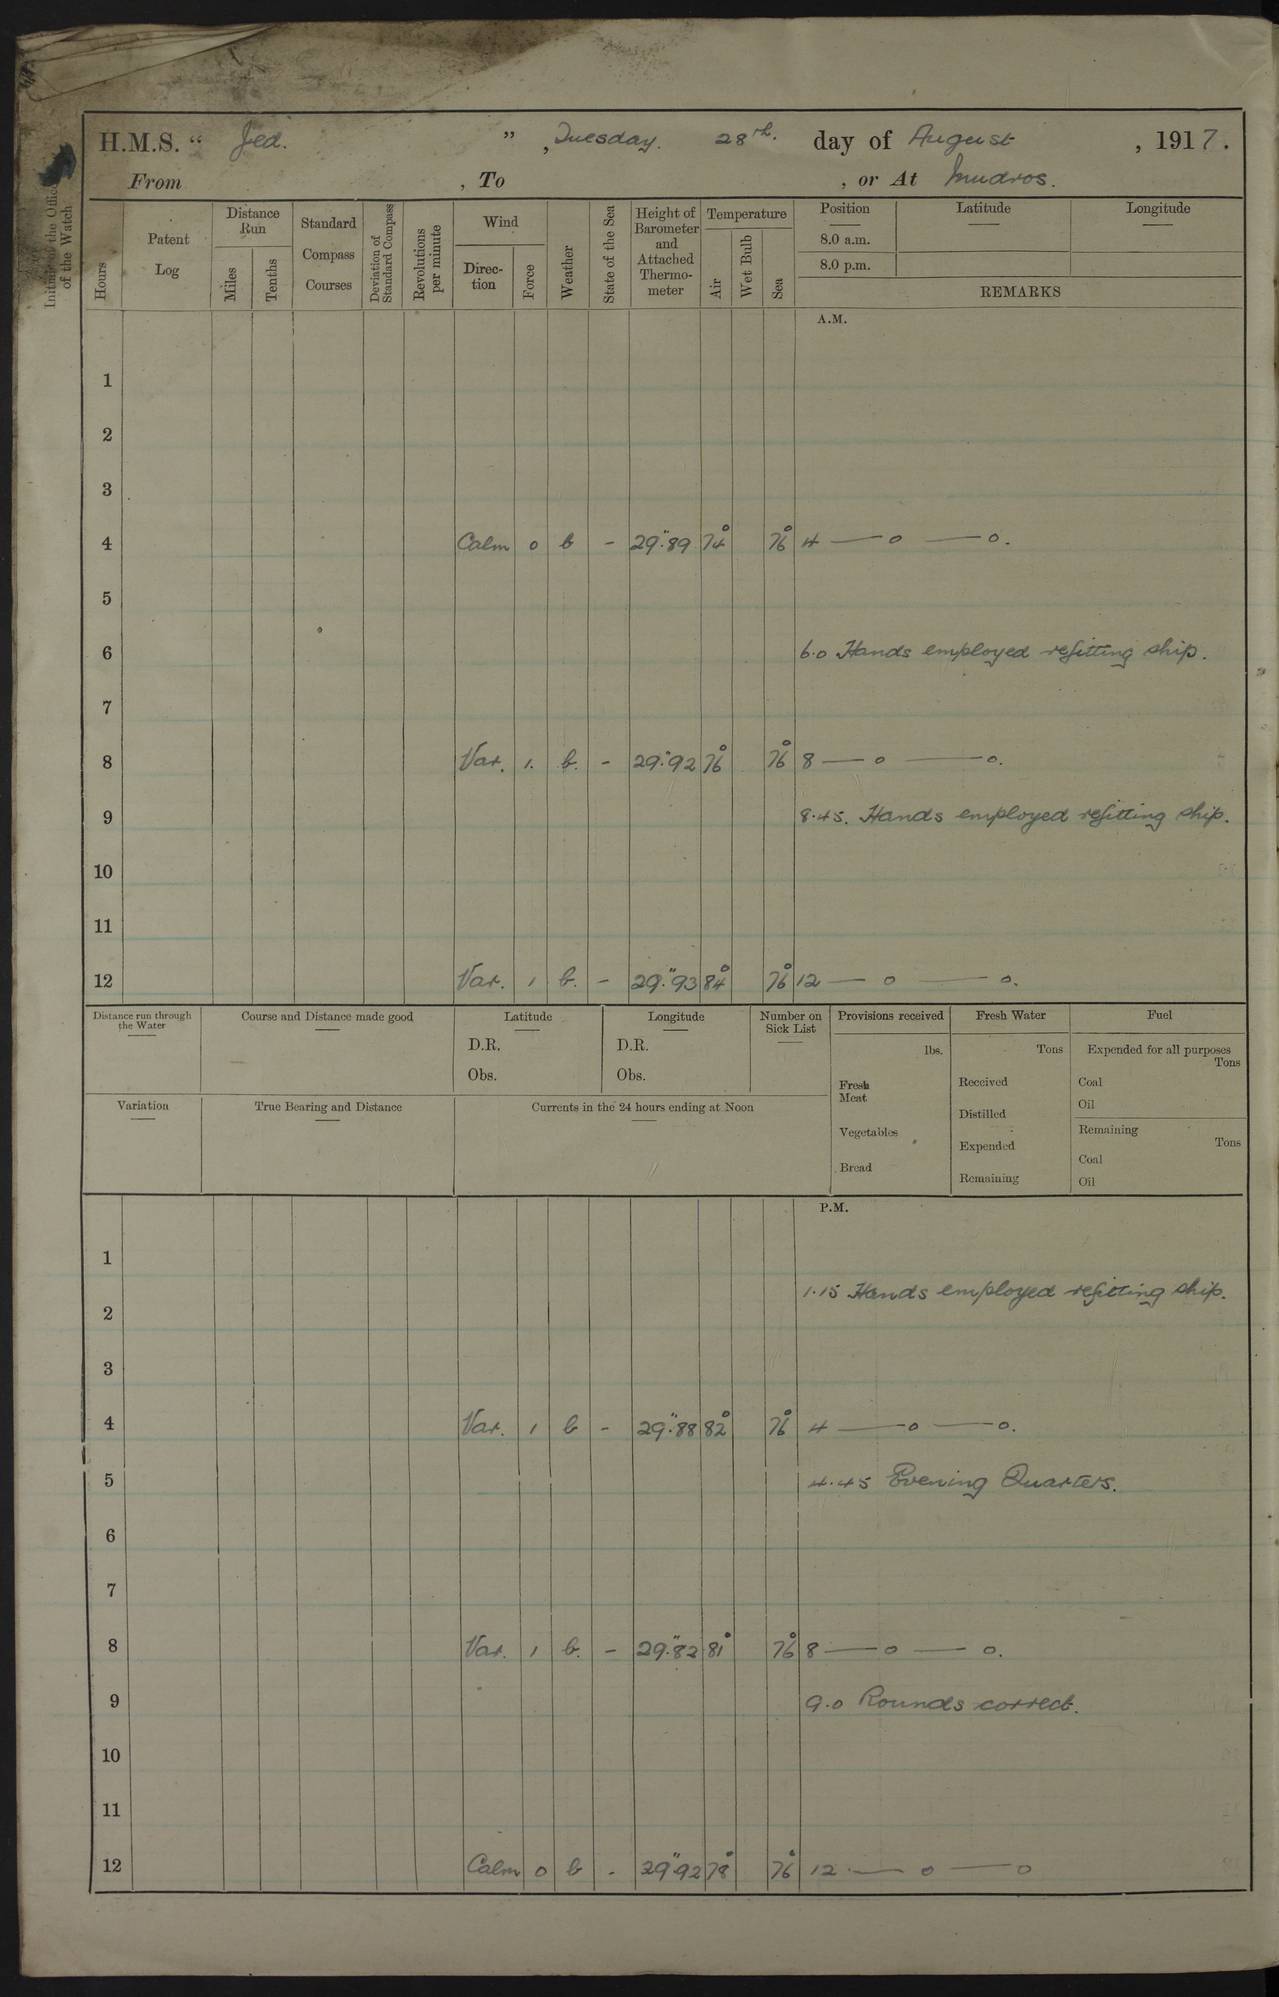 H.M.S. “ Jed. ” , Tuesday. 28th. day of August , 1917.
From , To , or At Mudros.
Initials of the Officer of the Watch
Hours
Patent Log
Distance Run
Miles
Tenths
Standard Compass Courses
Deviation of Standard Compass
Revolutions per minute
Wind
Direc-tion
Force
Weather
State of the Sea
Height of Barometer and Attached Thermo-meter
Temperature
Air
Wet Bulb
Sea
Position Latitude Longitude
8.0 a.m.
8.0 p.m.
REMARKS
A.M.
1
2
3
4 Calm 0 b - 29".89 74° 76° 4 — o — o.
5
6 6.0 Hands employed refitting ship.
7
8 Var. 1. b. - 29".92 76° 76° 8 — o — o.
9 8.45. Hands employed refitting ship.
10
11
12 Var. 1 b. - 29".93 84° 76° 12 — o — o.
Distance run through the Water
Course and Distance made good
Latitude
D.R.
Obs.
Longitude
D.R.
Obs.
Number on Sick List
Provisions received
lbs.
Fresh Meat
Vegetables
Bread
Fresh Water
Tons
Received
Distilled
Expended
Remaining
Fuel
Expended for all purposes
Tons
Coal
Oil
Remaining
Tons
Coal
Oil
Variation
True Bearing and Distance
Currents in the 24 hours ending at Noon
P.M.
1
1.15 Hands employed refitting ship.
2
3
4 Var. 1 b - 29".88 82° 76° 4 — o — o.
5 4.45 Evening Quarters.
6
7
8 Var. 1 b. - 29".82 81° 76° 8 — o — o.
9 9.0 Rounds correct.
10
11
12 Calm 0 b - 29".92 78° 76° 12 — o — o